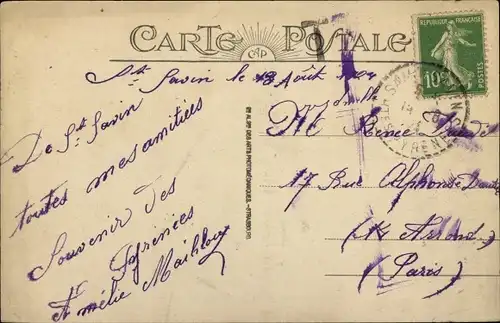 CARTE POSTALE
CAP
REPUBLIQUE FRANÇAISE
10c
POSTES
St Savin le 18 Août
De St Savin
toutes mes amitiés
Souvenir des
Pyrenées
Amélie
Melle Renée
17 Rue Alphonse Daudet
(14e Arrond.)
(Paris)